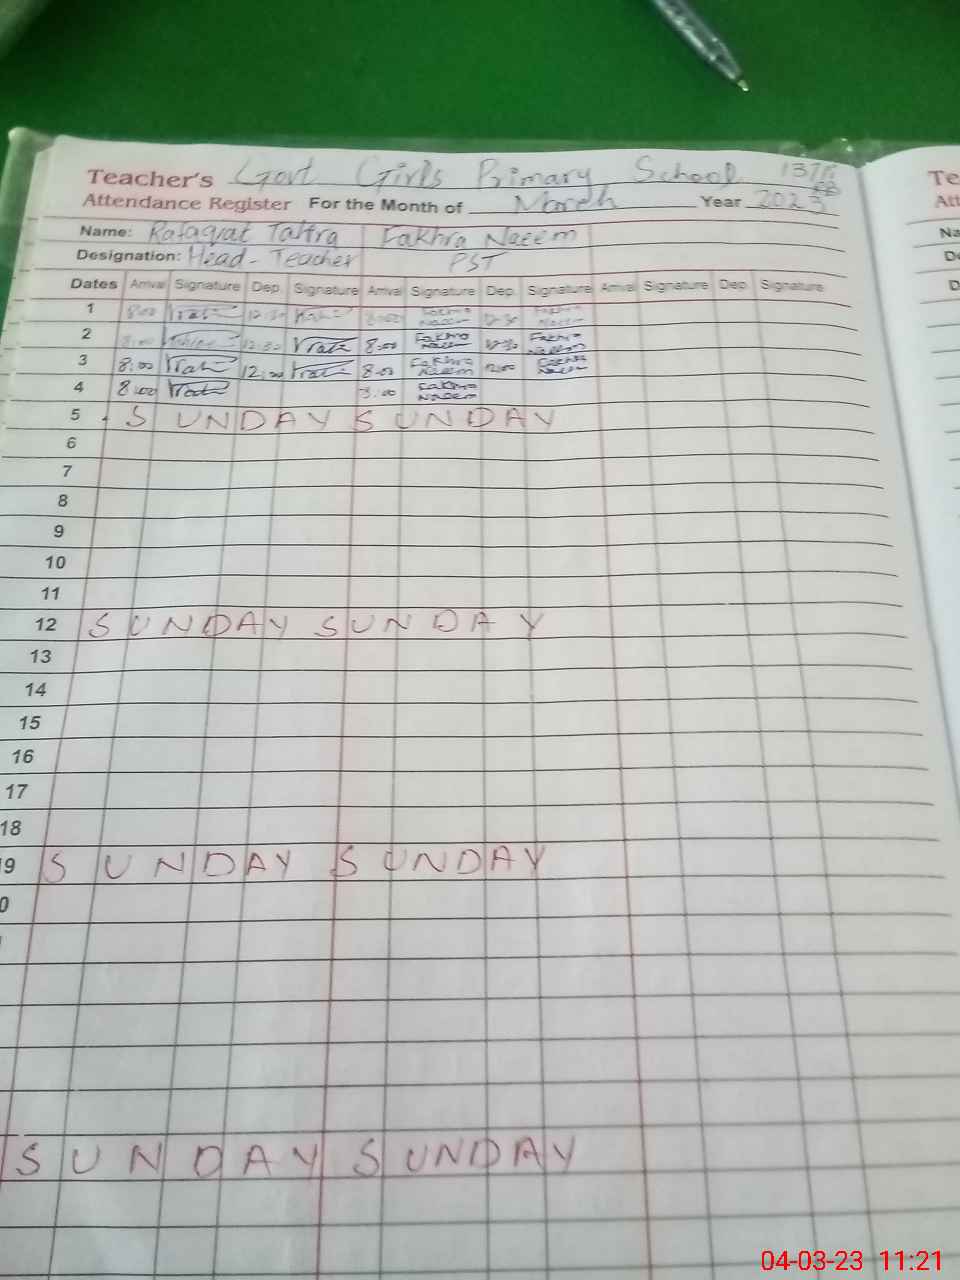 Teacher's Govt Girls Primary School 137
Attendance Register For the Month of March Year 2023
Name: Rafaqat Tahira Fakhra Naeem
Designation: Head-Teacher PST
Dates Arrival Signature Dep. Signature Arrival Signature Dep. Signature Arrival Signature Dep. Signature
1 8:00 12:30 8:00 Fakhra Naeem 12:30 Fakhra Naeem
2 8:00 12:30 8:00 Fakhra Naeem 12:30 Fakhra Naeem
3 8:00 12:00 8:00 Fakhra Naeem 12:00 Fakhra Naeem
4 8:00 8:00 Fakhra Naeem
5 SUNDAY SUNDAY
6
7
8
9
10
11
12 SUNDAY SUNDAY
13
14
15
16
17
18
9 SUNDAY SUNDAY
0
SUNDAY SUNDAY
Te
Att
Na
De
D
04-03-23 11:21